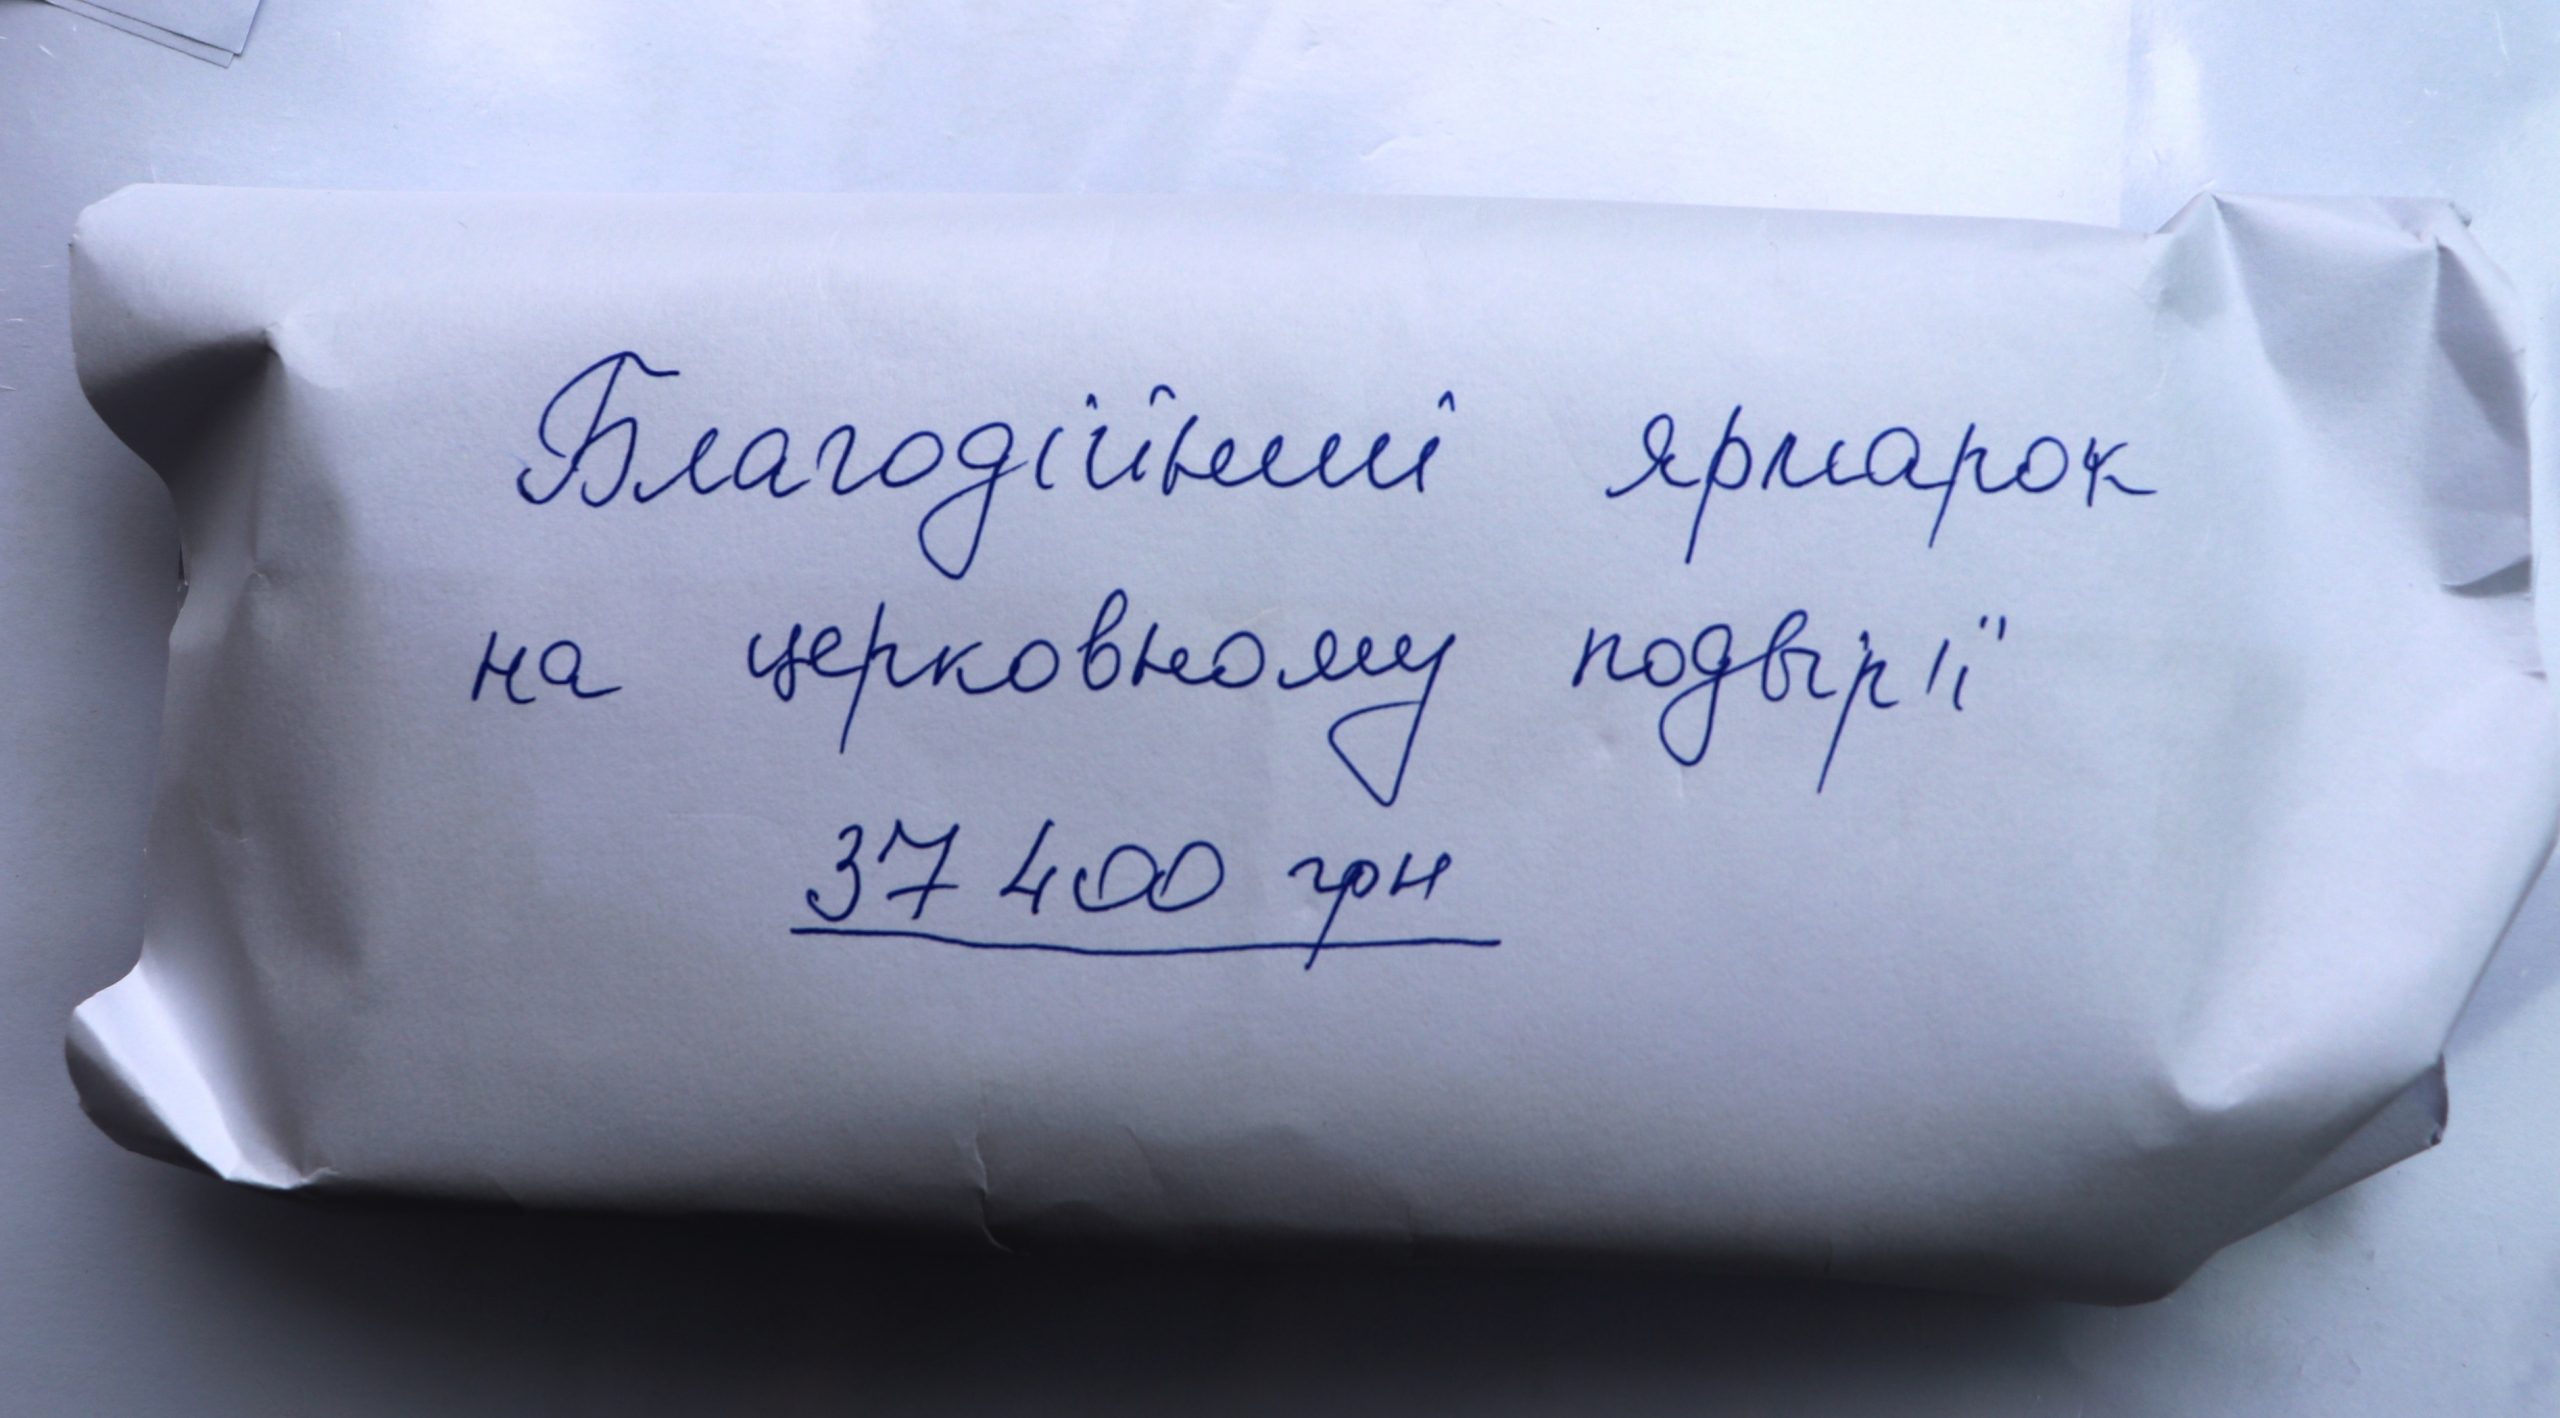 Благодійний ярмарок
на церковному подвірії
37 400 грн